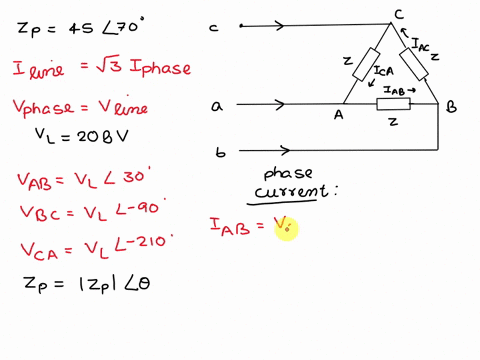 Zp = 45 ∠70°
I line = √3 Iphase
Vphase = Vline
VL = 208 V
VAB = VL ∠ 30°
VBC = VL ∠-90°
VCA = VL ∠-210°
Zp = |Zp| ∠θ
c
C
Z
ICA
IAC
Z
IAB →
a
A
B
Z
b
phase
current :
IAB = V